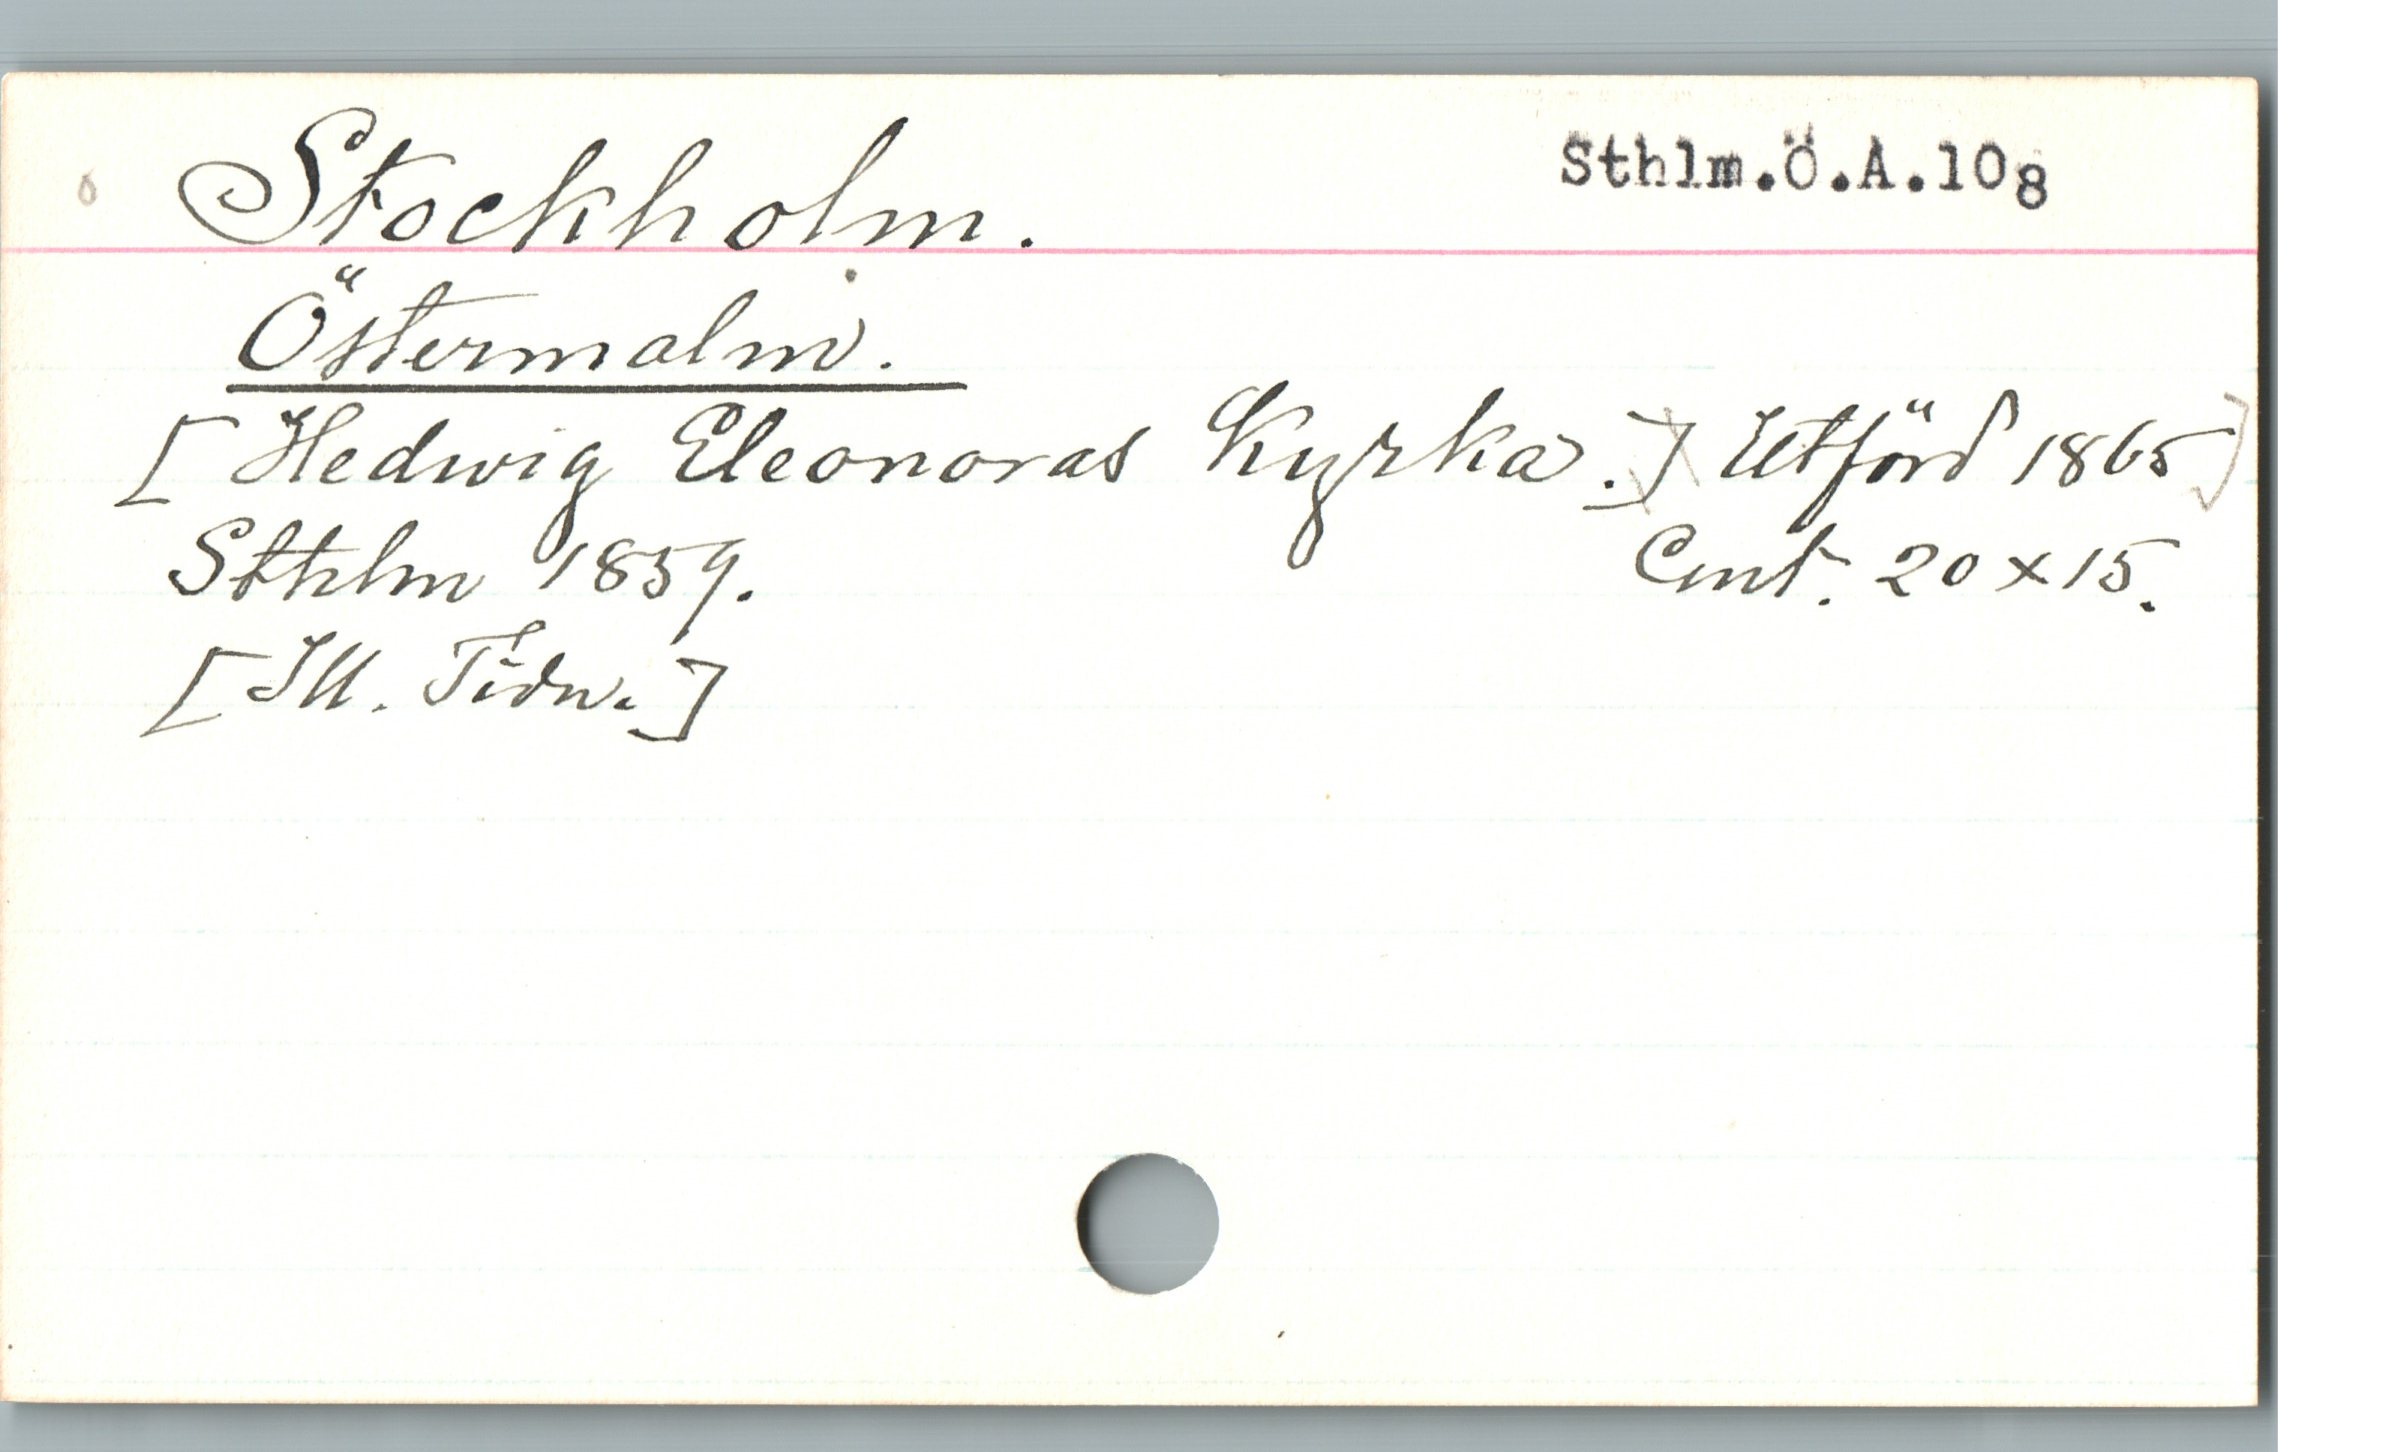 Stockholm. Sthlm.Ö.A.108
Östermalm.
[Hedwig Eleonoras Kyrka.] Utförd 1865]
Sthlm 1859. Cmt. 20 x 15.
[Ill. Tidn.]